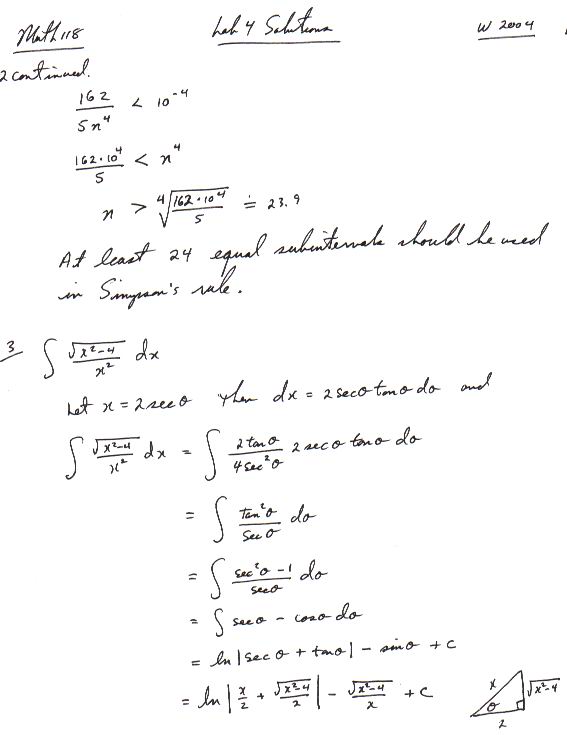 Math 118 Lab 4 Solutions W 2004
2 continued.
162/(5n⁴) < 10⁻⁴
(162·10⁴)/5 < n⁴
n > ⁴√((162·10⁴)/5) ≐ 23.9
At least 24 equal subintervals should be used
in Simpson's rule.
3 ∫ √(x²-4)/x² dx
Let x = 2 secθ then dx = 2 secθ tanθ dθ and
∫ √(x²-4)/x² dx = ∫ (2 tanθ)/(4 sec²θ) 2 secθ tanθ dθ
= ∫ tan²θ/secθ dθ
= ∫ (sec²θ - 1)/secθ dθ
= ∫ secθ - cosθ dθ
= ln |secθ + tanθ| - sinθ + C
= ln |x/2 + √(x²-4)/2| - √(x²-4)/x + C
x √(x²-4)
θ
2